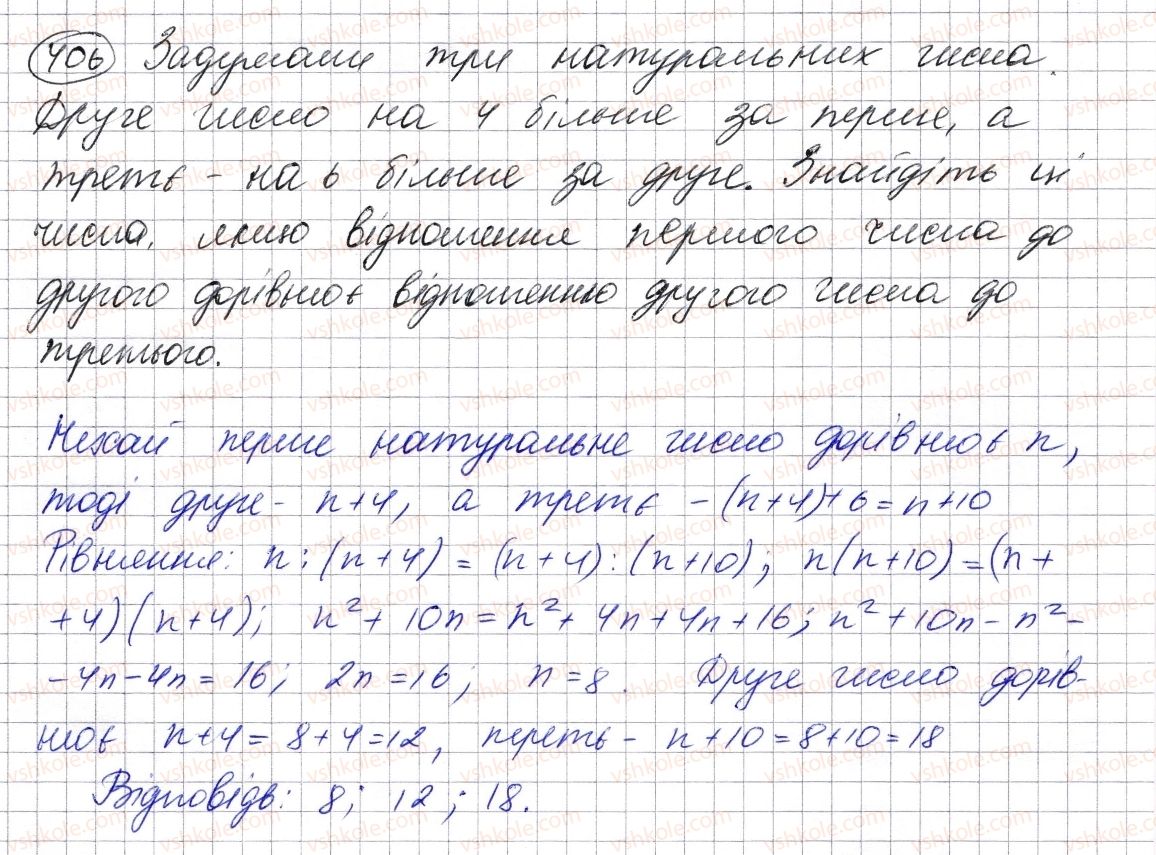 406 Задумали три натуральних числа.
Друге число на 4 більше за перше, а
третє - на 6 більше за друге. Знайдіть ці
числа, якщо відношення першого числа до
другого дорівнює відношенню другого числа до
третього.
Нехай перше натуральне число дорівнює n,
тоді друге - n+4, а третє - (n+4)+6=n+10
Рівняння: n:(n+4)=(n+4):(n+10); n(n+10)=(n+
+4)(n+4); n²+10n=n²+4n+4n+16; n²+10n-n²-
-4n-4n=16; 2n=16; n=8. Друге число дорів-
нює n+4=8+4=12, переть - n+10=8+10=18
Відповідь: 8; 12; 18.
vshkole.com